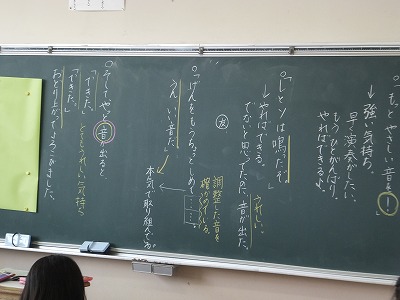 ○「もっとやさしい音を!」
↓強い気持ち。
早く演奏がしたい。
もうひとがんばり。
やればできるぞ。
○「レとソは鳴ったぞ」
↓やればできる。
でないと思ってたのに音が出た。
うれしい
友
○「げんをもうちょっとしめて……。
調整した音を
確かめている。
うん、いい音だ。」
本気で取り組んでる
○そしてやっと音が出ると、
「できた。とてもうれしい気持ち
「できた。」
おどり上がってよろこびました。